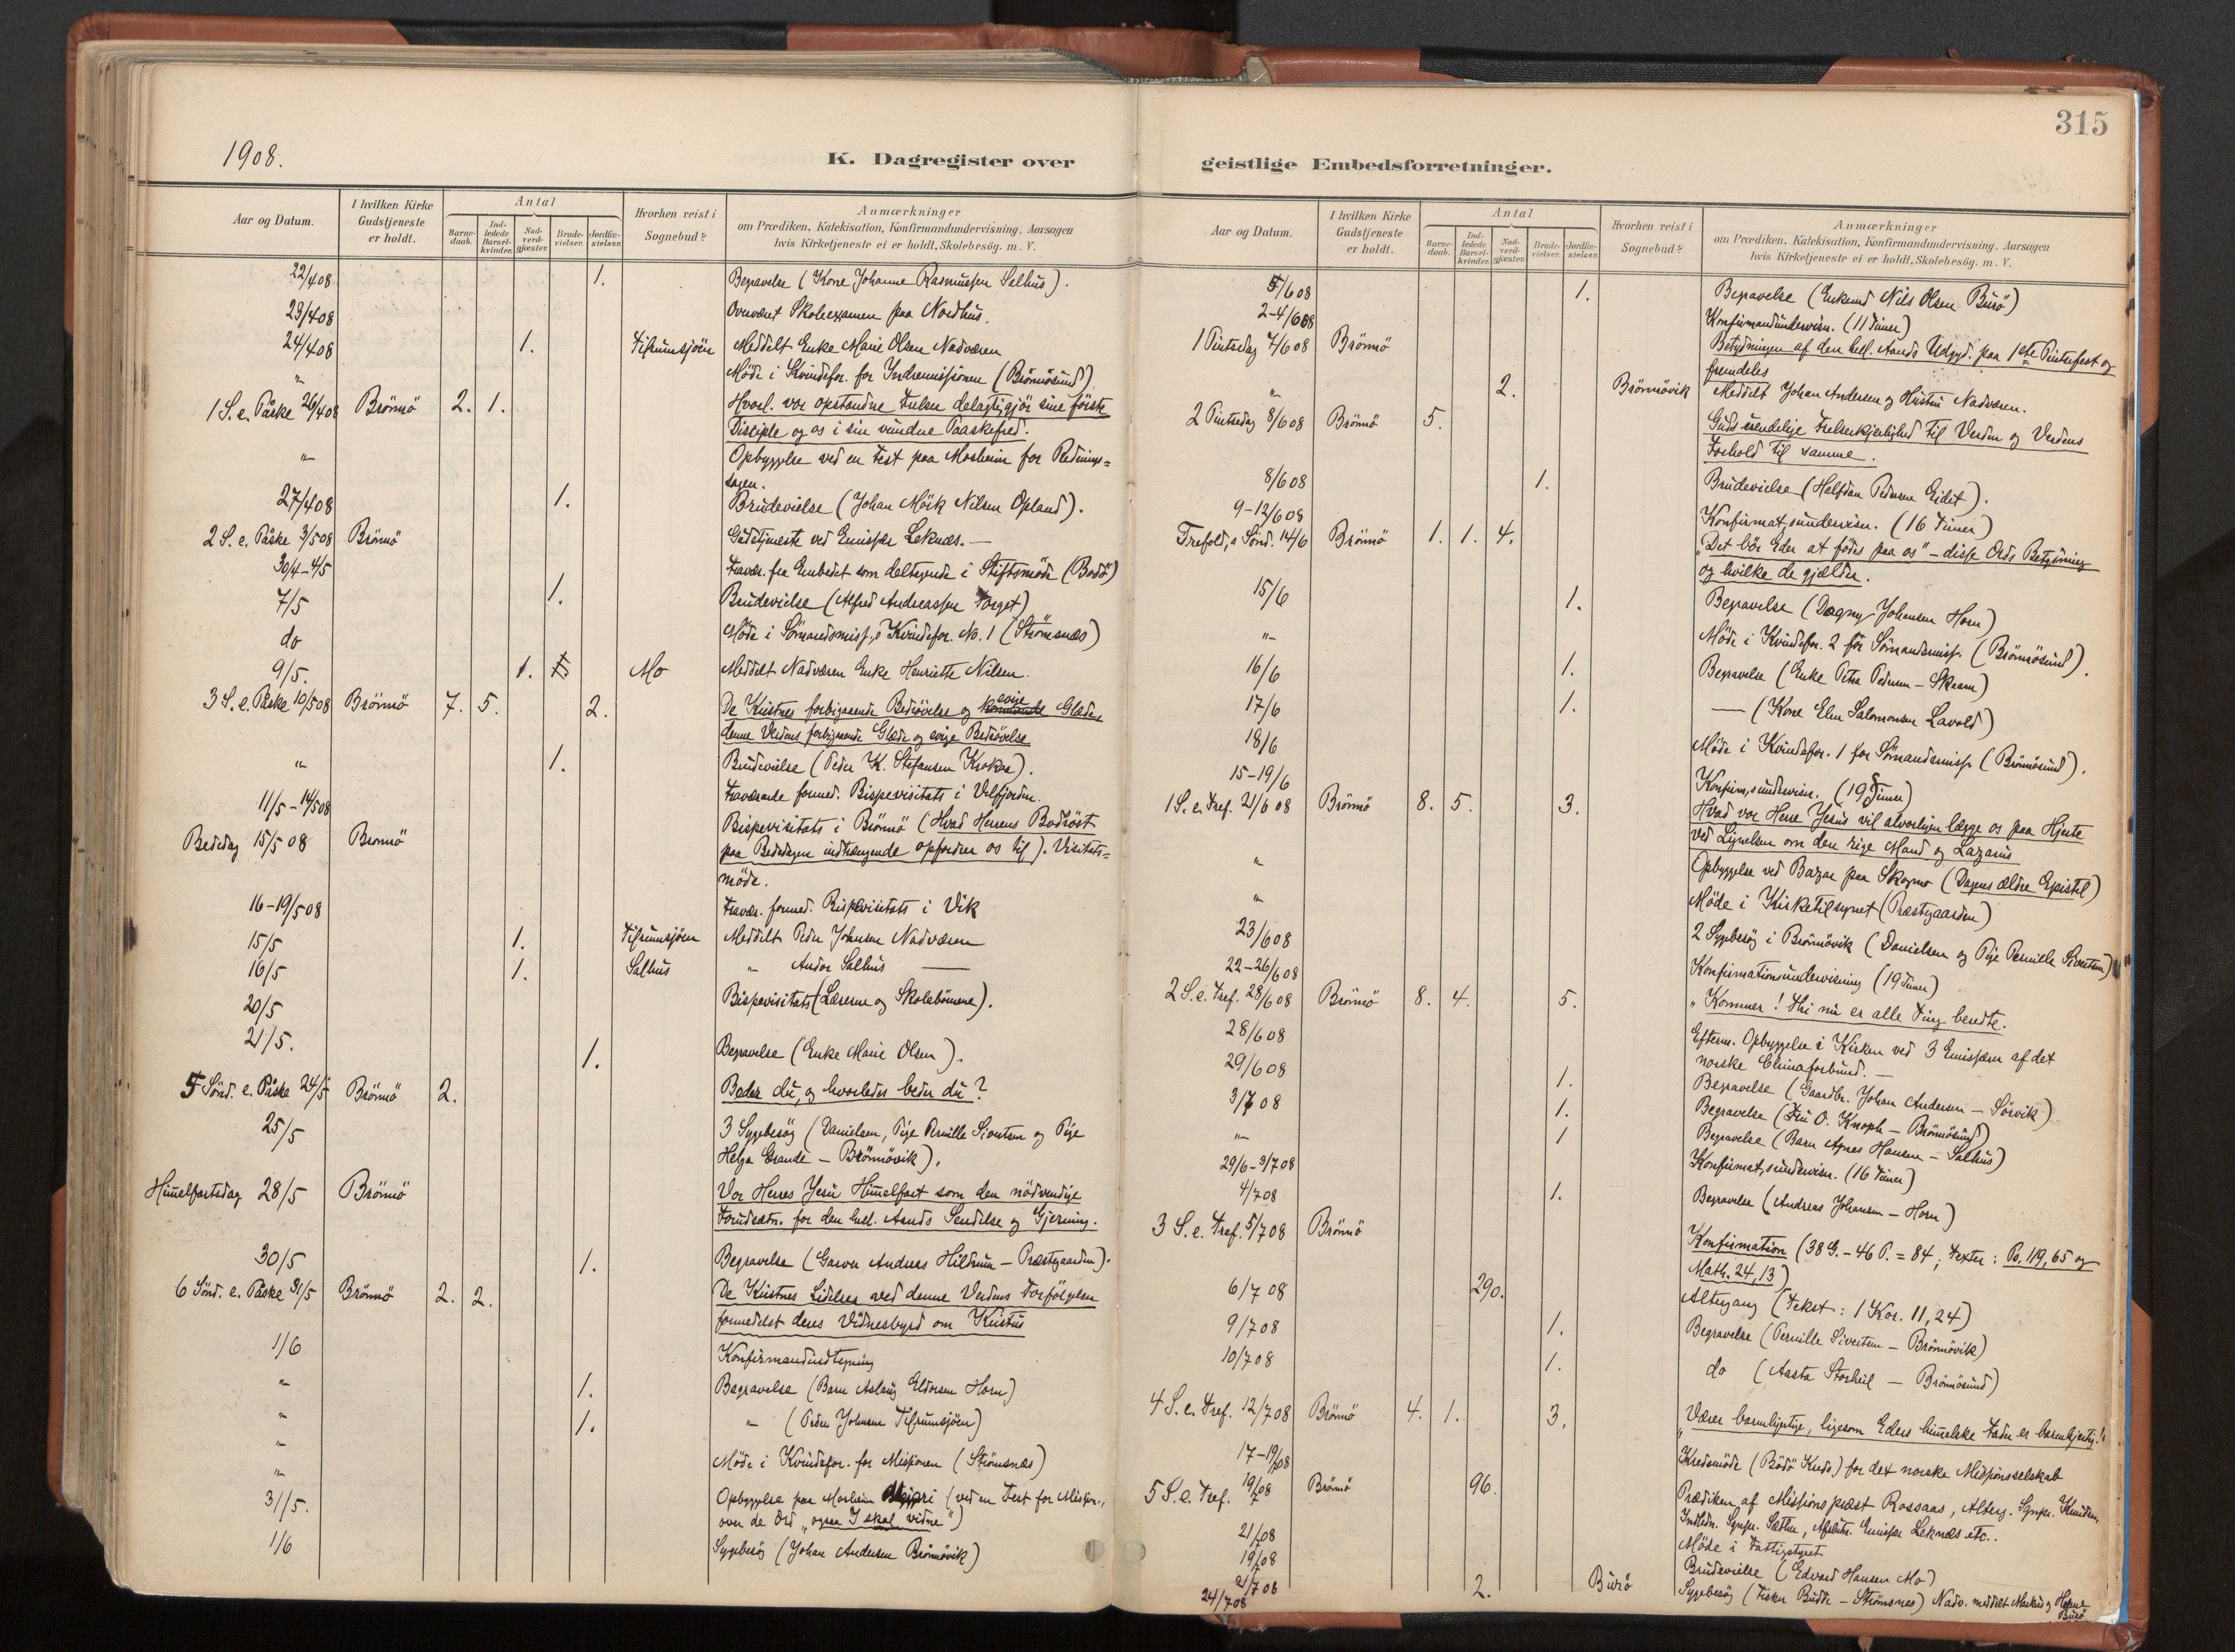 315
1908.
K. Dagregister over geistlige Embedsforretninger.
Aar og Datum.
I hvilken Kirke Gudstjeneste er holdt.
Antal
Barne-daab.
Ind-ledede Barsel-kvinder.
Nad-verd-gjæster.
Brude-vielser.
Jordfæ-stelser.
Hvorhen reist i Sognebud?
Anmærkninger
om Prædiken, Katekisation, Konfirmandundervisning, Aarsagen
hvis Kirketjeneste ei er holdt, Skolebesög. m. V.
22/4 08 1. Begravelse (Kone Johanne Rasmussen Salhus).
23/4 08 Overværet Skoleexamen paa Nordhus.
24/4 08 1. Tilrumsjöen Meddelt Enke Marie Olsen Nadveren
" Möde i Kvindefor. for Indremissionen (Brönnösund)
1 S. e. Påske 26/4 08 Brönnö 2. 1. Hvorl. vor opstandne Frelser delagtiggjör sine förste
Disciple og os i sin vundne Paaskefred.
" Opbyggelse ved en Fest paa Mosheim for Rednings=
sagen.
27/4 08 1. Brudevielse (Johan Mörk Nilsen Opland).
2 S. e. Påske 3/5 08 Brönnö Gudstjeneste ved Emissær Leknes. —
30/4-4/5 Fravær. fra Embedet som deltagende i Stiftsmöde (Bodö)
7/5 1. Brudevielse (Alfred Andreassen Torget)
do Möde i Sömandsmiss.s Kvindefor. No. 1 (Strömsnes)
9/5. 1. Mo Meddelt Nadveren Enke Henriette Nilsen.
3 S. e. Påske 10/5 08 Brönnö 7. 5. 2. De Kristnes forbigaaende Bedrövelse og evige Glæde,
denne Verdens forbigaaende Glæde og evige Bedrövelse
" 1. Brudevielse (Peder K. Stefansen Krokaa).
11/5 - 14/5 08 Fraværende formed. Bispevisitats i Velfjorden.
Bededag 15/5 08 Brönnö Bispevisitats i Brönnö (Hvad Herrens Bodröst
paa Bededagen indtrængende opfordrer os til). Visitats=
möde.
16-19/5 08 Fravær. formed. Bispevisitats i Vik
15/5 1. Tilrumsjöen Meddelt Peder Johnsen Nadveren
16/5 1. Salhus " Andor Salhus —
20/5 Bispevisitats (Lærerne og Skolebörnene).
21/5. 1. Begravelse (Enke Marie Olsen).
5 Sönd. e. Påske 24/5 Brönnö 2. Beder du, og hvorledes beder du?
25/5 3 Sygebesög (Danielsen, Pige Pernille Sivertsen og Pige
Helga Grande - Brönnövik).
Himelfartsdag 28/5 Brönnö Vor Herres Jesu Himelfart som den nödvendige
Forudsætn. for den hell. Aands Sendelse og Gjerning.
30/5 1. Begravelse (Garver Andreas Hildrum - Præstgaarden).
6 Sönd. e. Påske 31/5 Brönnö 2. 2. De Kristnes Lidelser ved denne Verdens Forfölgelser
formedelst deres Vidnesbyrd om Kristus
1/6 Konfirmandindtegning
" 1. Begravelse (Barn Aslaug Eldorsen Horn)
" 1. " (Peder Johnsen Tilrumsjöen)
" Möde i Kvindefor. for Missionen (Strömsnes)
31/5. Opbyggelse paa Mosheim (ved en Fest for Mission.,
over de Ord "ogsaa I skal vidne")
1/6 Sygebesög (Johan Andersen Brönnövik)
Aar og Datum.
I hvilken Kirke Gudstjeneste er holdt.
Antal
Barne-daab.
Ind-ledede Barsel-kvinder.
Nad-verd-gjæster.
Brude-vielser.
Jordfæ-stelser.
Hvorhen reist i Sognebud?
Anmærkninger
om Prædiken, Katekisation, Konfirmandundervisning, Aarsagen
hvis Kirketjeneste ei er holdt, Skolebesög. m. V.
5/6 08 1. Begravelse (Enkemd Nils Olsen Burö)
2-4/6 08 Konfirmandundervisn. (11 Timer)
1 Pintsedag 7/6 08 Brönnö Betydningen af den hell. Aands Udgyd. paa 1ste Pintsefest og
fremdeles
" 2. Brönnövik Meddelt Johan Andersen og Hustru Nadveren.
2 Pintsedag 8/6 08 Brönnö 5. Guds uendelige Frelserkjærlighed til Verden og Verdens
Forhold til samme.
8/6 08 1. Brudevielse (Halfdan Pedersen Eidet).
9-12/6 08 Konfirmat.sundervisn. (16 Timer)
Trefold.s Sönd. 14/6 Brönnö 1. 1. 4. "Det bör Eder at födes paa ny" - disse Ords Betydning
og hvilke de gjælder.
15/6 1. Begravelse (Dagny Johansen Horn)
" Möde i Kvindefor. 2 for Sömandsmiss. (Brönnösund).
16/6 1. Begravelse (Enke Petra Pedersen - Skaarn)
17/6 1. — (Kone Elen Salomonsen Lavold)
18/6 Möde i Kvindefor. 1 for Sömandsmiss. (Brönnösund).
15-19/6 Konfirm.sundervisn. (19 Timer)
1 S. e. Tref. 21/6 08 Brönnö 8. 5. 3. Hvad vor Herre Jesus vil alvorligen lægge os paa Hjerte
ved Lignelsen om den rige Mand og Lazarus
" Opbyggelse ved Bazar paa Skogmo (Dagens ældre Epistel)
" Möde i Kirketilsynet (Præstgaarden)
23/6 08 2 Sygebesög i Brönnövik (Danielsen og Pige Pernille Sivertsen)
22-26/6 08 Konfirmationsundervisning (19 Timer)
2 S. e. Tref. 28/6 08 Brönnö 8. 4. 5. "Kommer! Thi nu er alle Ting beredte.
28/6 08 Efterm. Opbyggelse i Kirken ved 3 Emissærer af det
norske Chinaforbund. —
29/6 08 1. Begravelse (Gaardbr. Johan Andersen - Sörvik)
3/7 08 1. Begravelse (Fru O. Knoph - Brönnösund)
" 1 Begravelse (Barn Agnes Hansen - Salhus)
29/6-3/7 08 Konfirmat.sundervisn. (16 Timer)
4/7 08 1. Begravelse (Andreas Johansen - Horn)
3 S. e. Tref. 5/7 08 Brönnö Konfirmation (38 G. - 46 P. = 84; Texter: Ps. 119, 65 og
Math. 24, 13)
6/7 08 290. Altergang (Tekst: 1 Kor. 11, 24)
9/7 08 1. Begravelse (Pernille Sivertsen - Brönnövik)
10/7 08 1. do (Aasta Storheil - Brönnösund)
4 S. e. Tref. 12/7 08 Brönnö 4. 1. 3. "Værer barmhjertige, ligesom Eders himelske Fader er barmhjertig!"
17-19/7 08 Kredsmöde (Bodö Kreds) for det norske Missionsselskab
5 S. e. Tref. 19/7 08 Brönnö 96. Prædiken af Missionspræst Rossaas, Alterg. Sgnpr. Knudsen,
Indledn. Sgnpr. Sæther, Afslutn. Emissær Leknes etc..
21/7 08 Möde i Fattigstyret
19/7 08 Brudevielse (Edvard Hansen Mo)
21/7 08
24/7 08 2. Burö Sygebesög (Fisker Budde - Strömsnes) Nadv. meddelt Markus og
Burö